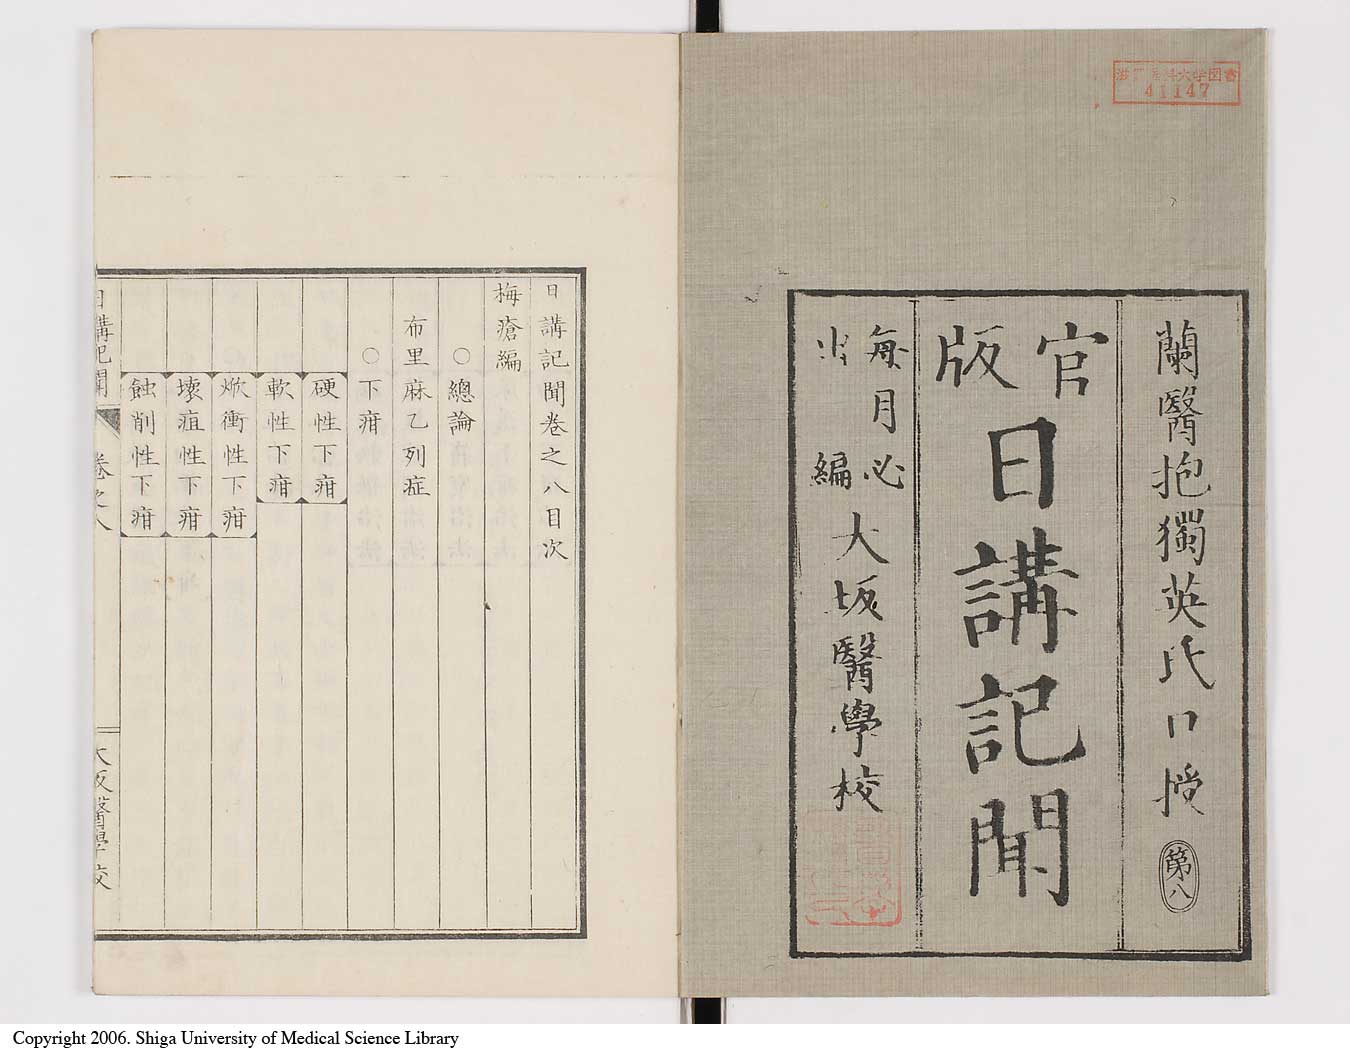 滋賀医科大学図書
41147
蘭醫抱獨英氏口授
第八
官版
日講記聞
毎月必出編
大坂醫學校
日講記聞卷之八目次
梅瘡編
○總論
布里麻乙列症
○下疳
硬性下疳
軟性下疳
焮衝性下疳
壊疽性下疳
蝕削性下疳
日講記聞
卷之八
大坂醫學校
Copyright 2006. Shiga University of Medical Science Library